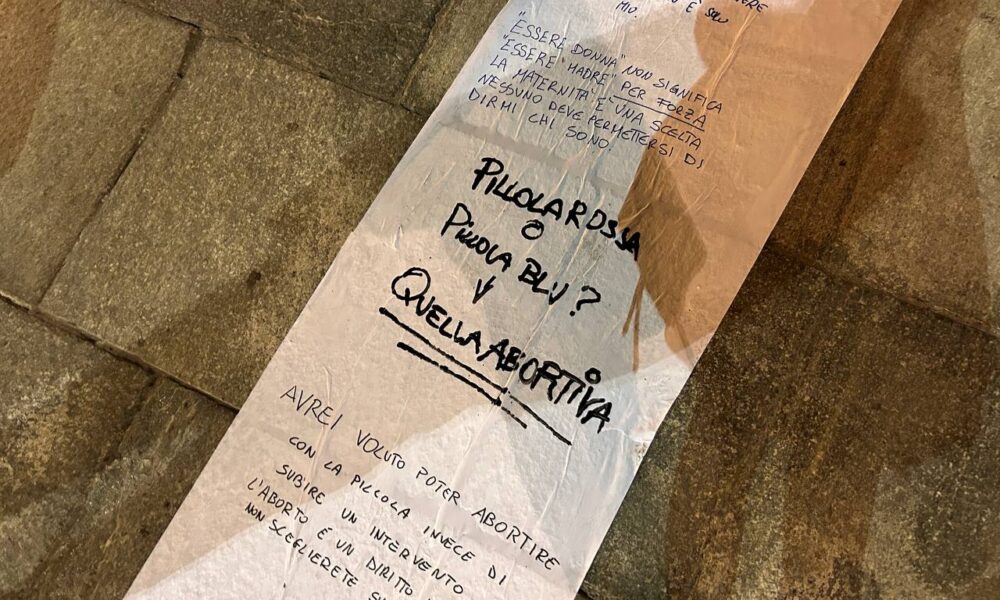 E SOLU
MIU.
"ESSERE DONNA" NON SIGNIFICA
"ESSERE "MADRE" PER FORZA
LA MATERNITÀ È UNA SCELTA
NESSUNO DEVE PERMETTERSI DI
DIRMI CHI SONO.
PILLOLA ROSSA
O
PILLOLA BLU?
QUELLA ABORTIVA
AVREI VOLUTO POTER ABORTIRE
CON LA PILLOLA INVECE DI
SUBIRE UN INTERVENTO
L'ABORTO È UN DIRITTO
NON SCEGLIERETE